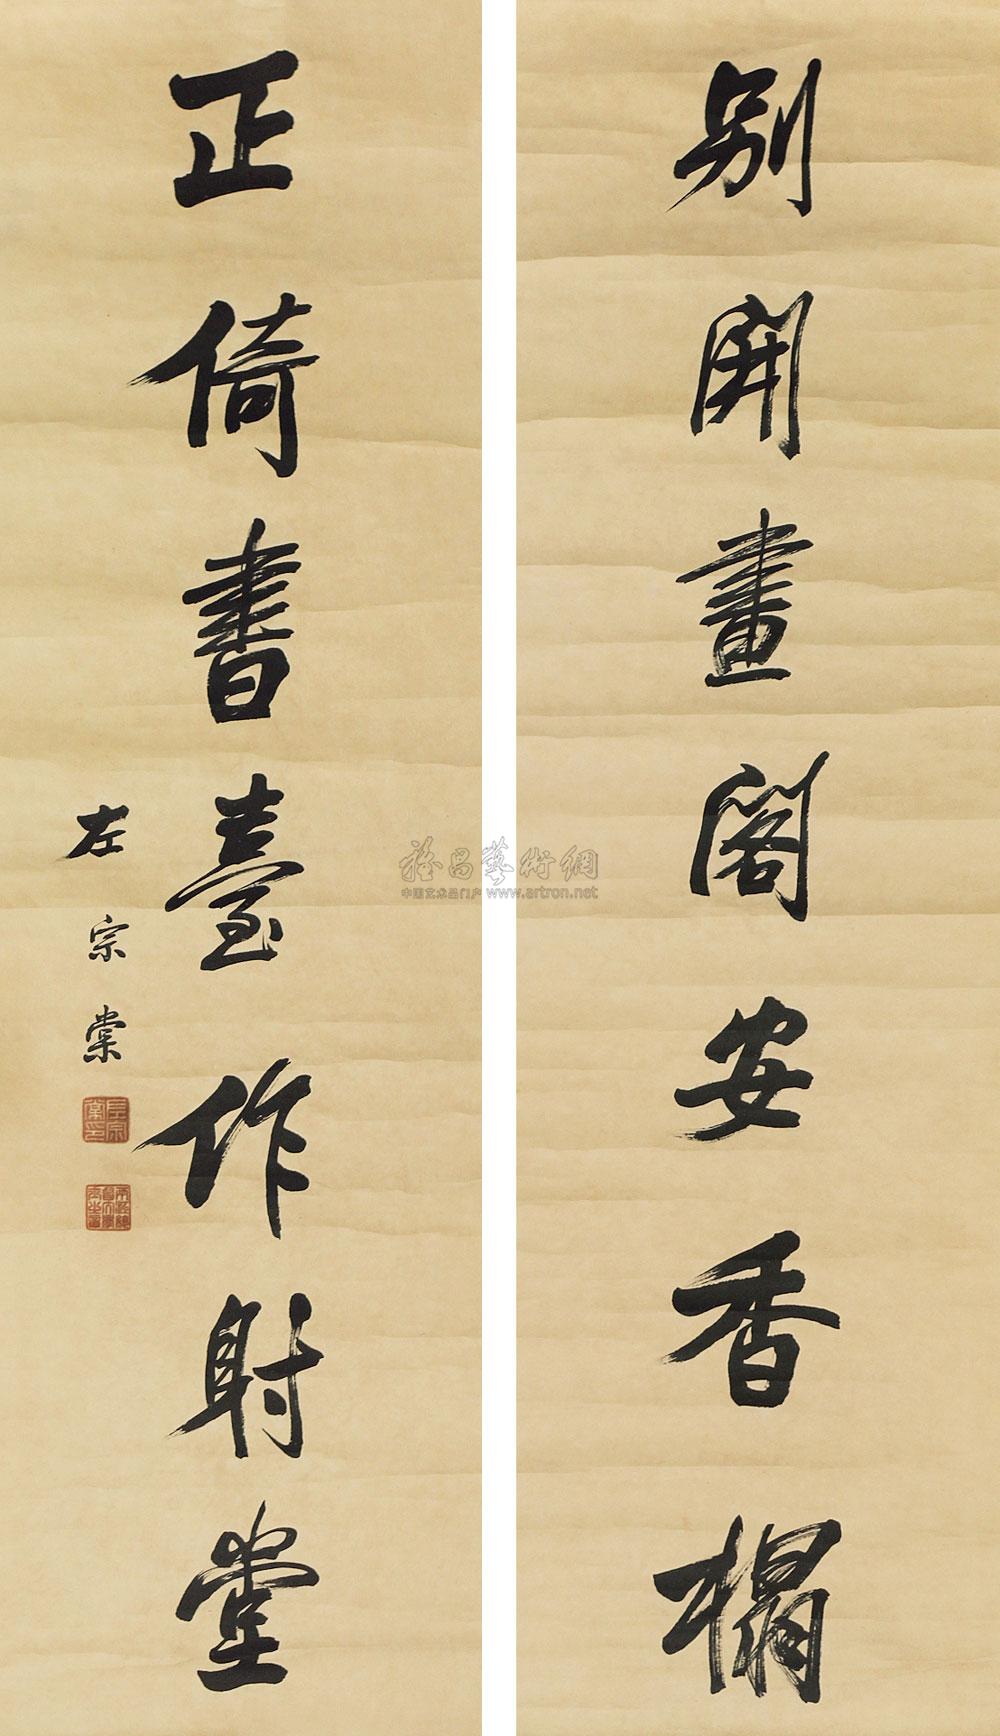 别開畫閣安香榻
正倚書臺作射堂
左宗棠
雅昌藝術網
中国艺术品门户 www.artron.net